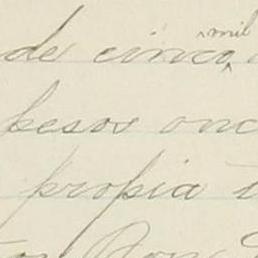 de cinco mil
pesos onc
propia